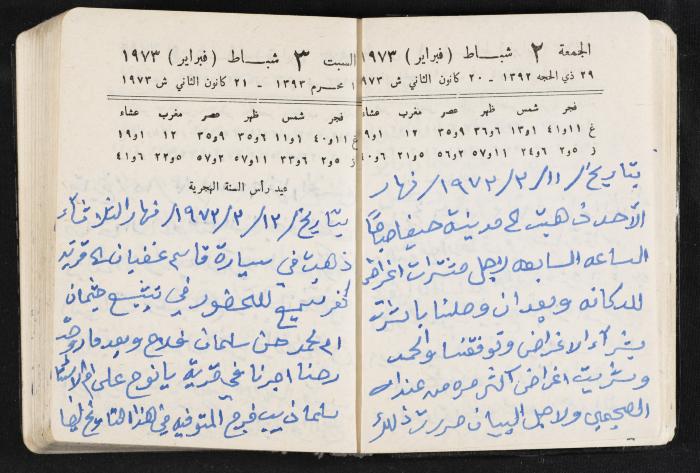 الجمعة ٢ شبـاط (فبراير) ١٩٧٣
٢٩ ذي الحجه ١٣٩٢ - ٢٠ كانون الثاني ش ٩٧٣
فجر شمس ظهر عصر مغرب عشاء
غ ١١و٤١ ١و١٣ ٦و٣٦ ٩و٣٥ ١٢ ١و١٩
ز ٥و٢ ٦و٢٤ ١١و٥٧ ٢و٥٦ ٥و٢١ ٦و٤٠
بتاريخ /١١/٣/١٩٧٣/ نهار
الأحد ذهبت الى مدينة حيفا صباحًا
الساعه السابعه لاجل مشترات اغراض
للدكانه وبعد ان وصلنا باشرت
بشرآء الاغراض وتوفقنا والحمد
وشريت اغراض اكثر مره من عند
ولاجل البيان حررت ذلك
السبت ٣ شبـاط (فبراير) ١٩٧٣
١ محرم ١٣٩٣ - ٢١ كانون الثاني ش ١٩٧٣
فجر شمس ظهر عصر مغرب عشاء
غ ١١و٤٠ ١و١١ ٦و٣٥ ٩و٣٥ ١٢ ١و١٩
ز ٥و٢ ٦و٢٣ ١١و٥٧ ٢و٥٧ ٥و٢٢ ٦و٤١
عيد رأس السنة الهجرية
بتاريخ /١٣/٣/١٩٧٣/ نهار الثلاثآء
ذهبت في سيارة قاسم غضبان الى قرية
كفر سميع للحضور في تشييع جثمان
ام محمد حسن سلمان فلاح وبعد ما روحّ
رحنا اجرنا في قرية يانوح على ام
سلمان ذيب فرج المتوفيه في هذا التاريخ ايضا